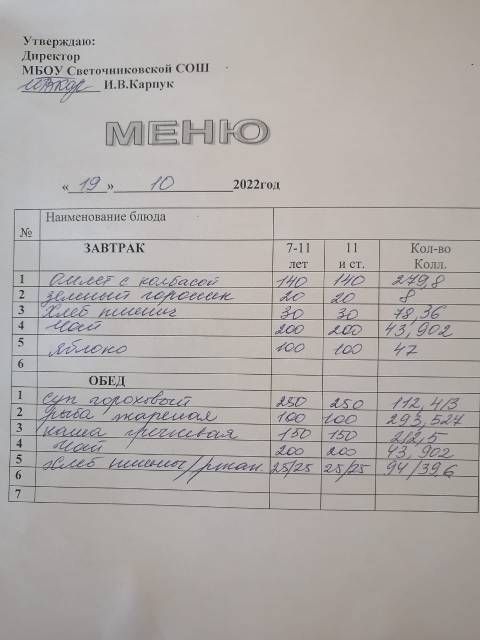 Утверждаю:
Директор
МБОУ Светочниковской СОШ
И.В.Карпук
МЕНЮ
« 19 » 10 2022год
№ Наименование блюда
ЗАВТРАК 7-11 лет 11 и ст. Кол-во Колл.
1 Омлет с колбасой 140 140 279,8
2 зеленый горошек 20 20 8
3 Хлеб пшенич 30 30 78,36
4 Чай 200 200 43,902
5 яблоко 100 100 47
6
ОБЕД
1 суп гороховый 250 250 112,413
2 рыба жареная 100 100 293,527
3 каша гречневая 150 150 212,5
4 Чай 200 200 43,902
5 Хлеб пшенич/ржан 25/25 25/25 94/39,6
6
7